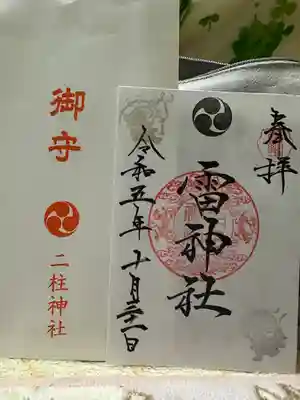 御守
二柱神社
奉拝
雷神社
令和五年十月三十一日